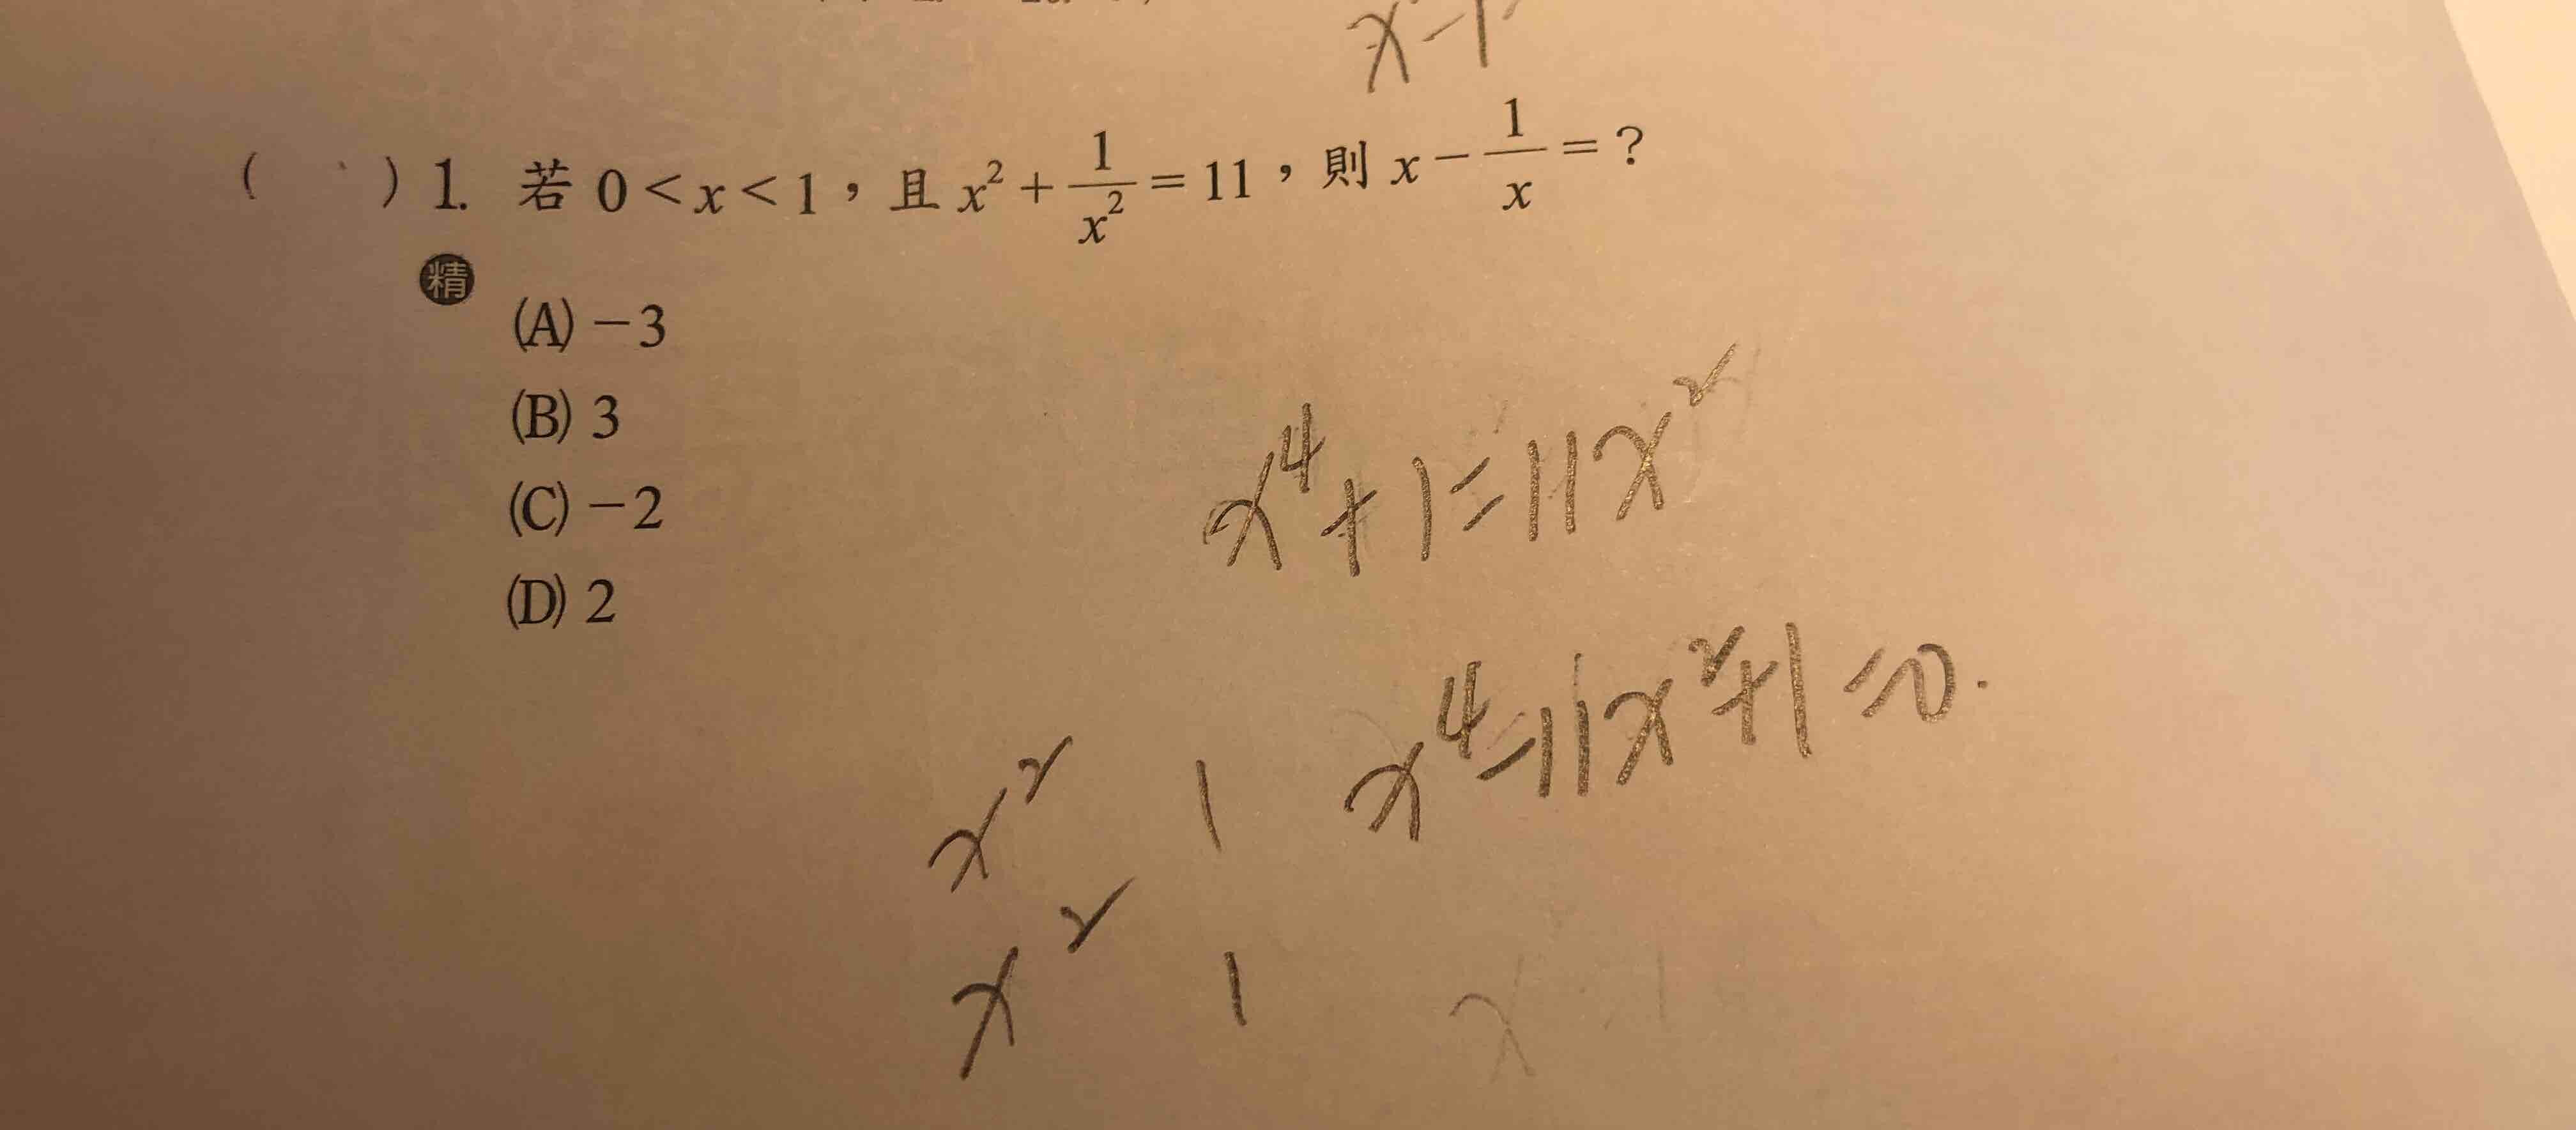 ( ) 1. 若 0 < x < 1，且 x² + 1/x² = 11，則 x − 1/x = ？
精
(A) −3
(B) 3
(C) −2
(D) 2
x⁴+1=11x²
x⁴−11x²+1=0.
x² 1
x² 1